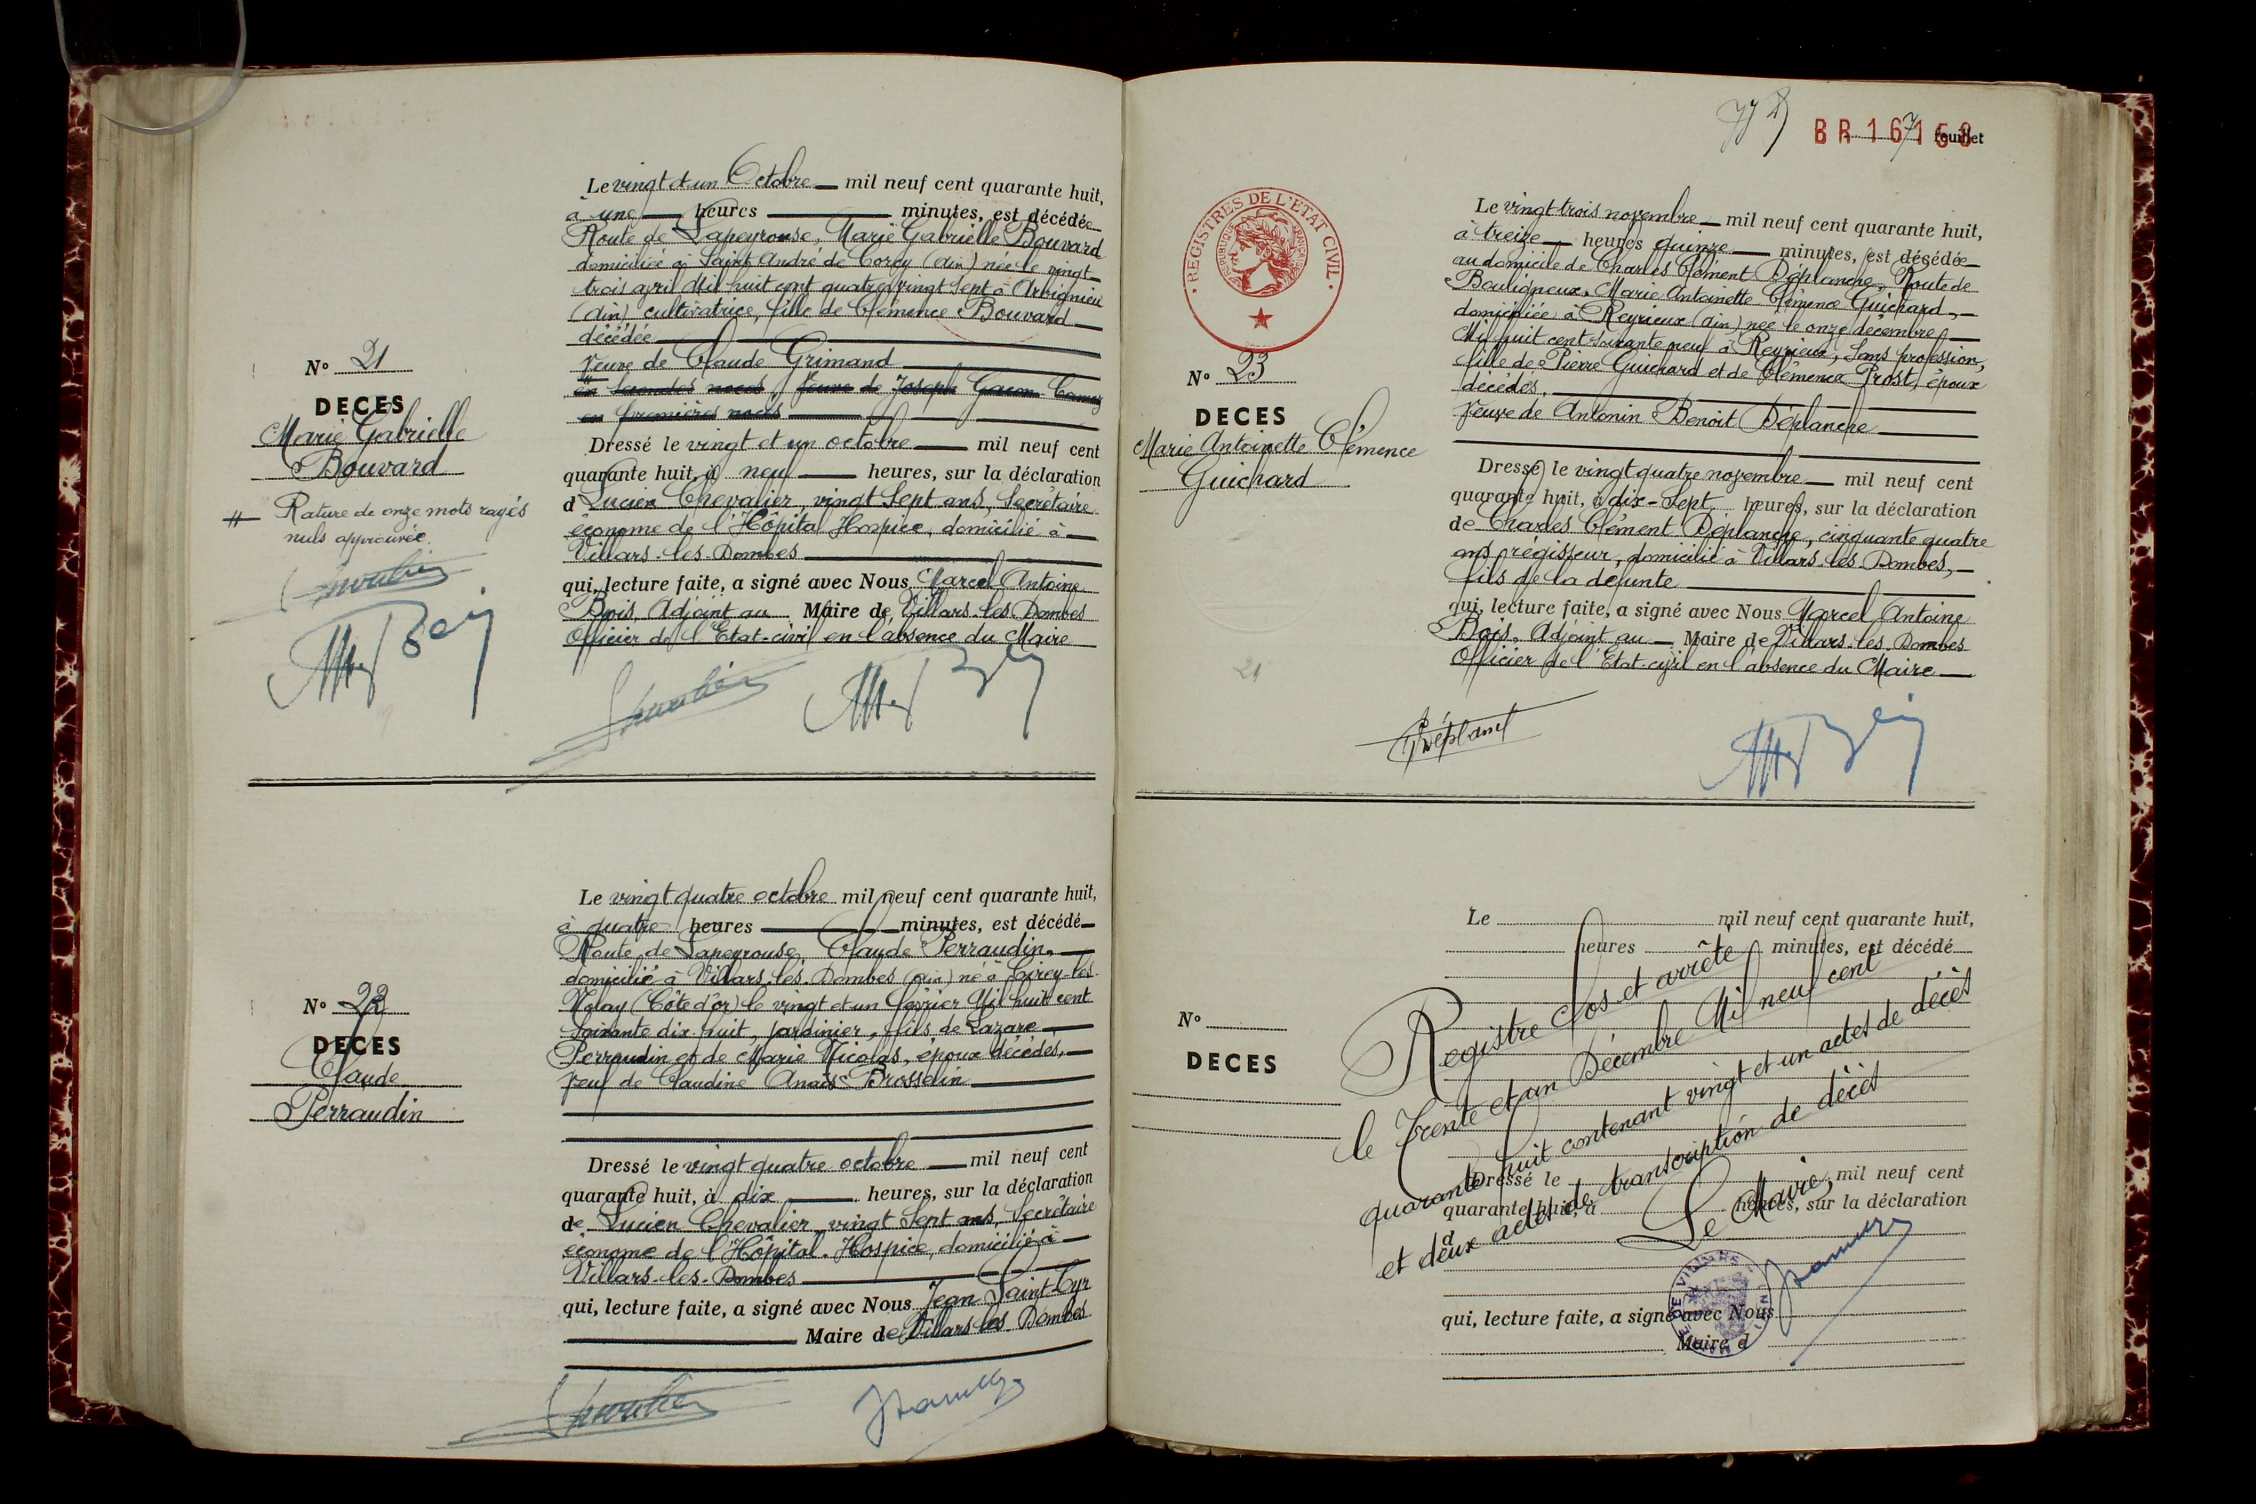 Le vingt et un Octobre mil neuf cent quarante huit,
à une heures minutes, est décédée
Route de Lapeyrouse, Marie Gabrielle Bouvard
domiciliée à Saint André de Corcy (Ain) née le vingt
trois avril Mil huit cent quatre vingt sept à Arbignieu
(Ain) cultivatrice, fille de Clémence Bouvard
décédée
Veuve de Claude Grimand
en secondes noces, Veuve de Joseph Gacon
en premières noces
N° 21
DECES
Marie Gabrielle
Bouvard
Rature de onze mots rayés
nuls approuvée.
Dressé le vingt et un octobre mil neuf cent
quarante huit, à neuf heures, sur la déclaration
d Lucien Chevalier, vingt sept ans, Secrétaire
économe de l'Hôpital Hospice, domicilié à
Villars-les-Dombes
qui, lecture faite, a signé avec Nous Marcel Antoine
Bois, Adjoint au Maire de Villars-les-Dombes
Officier de l'Etat-civil en l'absence du Maire
Le vingt quatre octobre mil neuf cent quarante huit,
à quatre heures minutes, est décédé
Route de Lapeyrouse, Claude Perraudin,
domicilié à Villars-les-Dombes (Ain) né à Cirey-les-
Nolay (Côte d'or) le vingt et un février Mil huit cent
soixante dix huit, jardinier, fils de Lazare
Perraudin et de Marie Nicolas, époux décédés,
veuf de Claudine Anaïs Brosselin
N° 22
DECES
Claude
Perraudin
Dressé le vingt quatre octobre mil neuf cent
quarante huit, à dix heures, sur la déclaration
de Lucien Chevalier, vingt sept ans, Secrétaire
économe de l'Hôpital-Hospice, domicilié à
Villars-les-Dombes
qui, lecture faite, a signé avec Nous Jean Saint-Cyr
Maire de Villars les Dombes
BR 167158
7 feuillet
REGISTRES DE L'ETAT CIVIL
REPUBLIQUE FRANÇAISE
Le vingt-trois novembre mil neuf cent quarante huit,
à treize heures quinze minutes, est décédée
au domicile de Charles Clément Déplanche, Route de
Bouligneux, Marie Antoinette Clémence Guichard,
domiciliée à Reyrieux (Ain) née le onze décembre
Mil huit cent soixante neuf à Reyrieux, Sans profession,
fille de Pierre Guichard et de Clémence Prost, époux
décédés.
Veuve de Antonin Benoit Déplanche
N° 23
DECES
Marie Antoinette Clémence
Guichard
Dressé le vingt quatre novembre mil neuf cent
quarante huit, à dix-sept heures, sur la déclaration
de Charles Clément Déplanche, cinquante quatre
ans, régisseur, domicilié à Villars-les-Dombes,
fils de la défunte
qui, lecture faite, a signé avec Nous Marcel Antoine
Bois, Adjoint au Maire de Villars-les-Dombes
Officier de l'Etat-civil en l'absence du Maire
Le mil neuf cent quarante huit,
heures minutes, est décédé
N°
DECES
Registre clos et arrêté
le trente et un Décembre Mil neuf cent
quarante huit contenant vingt et un actes de décès
et deux actes de transcription de décès
Le Maire,
Dressé le mil neuf cent
quarante huit, à heures, sur la déclaration
d
qui, lecture faite, a signé avec Nous
Maire d